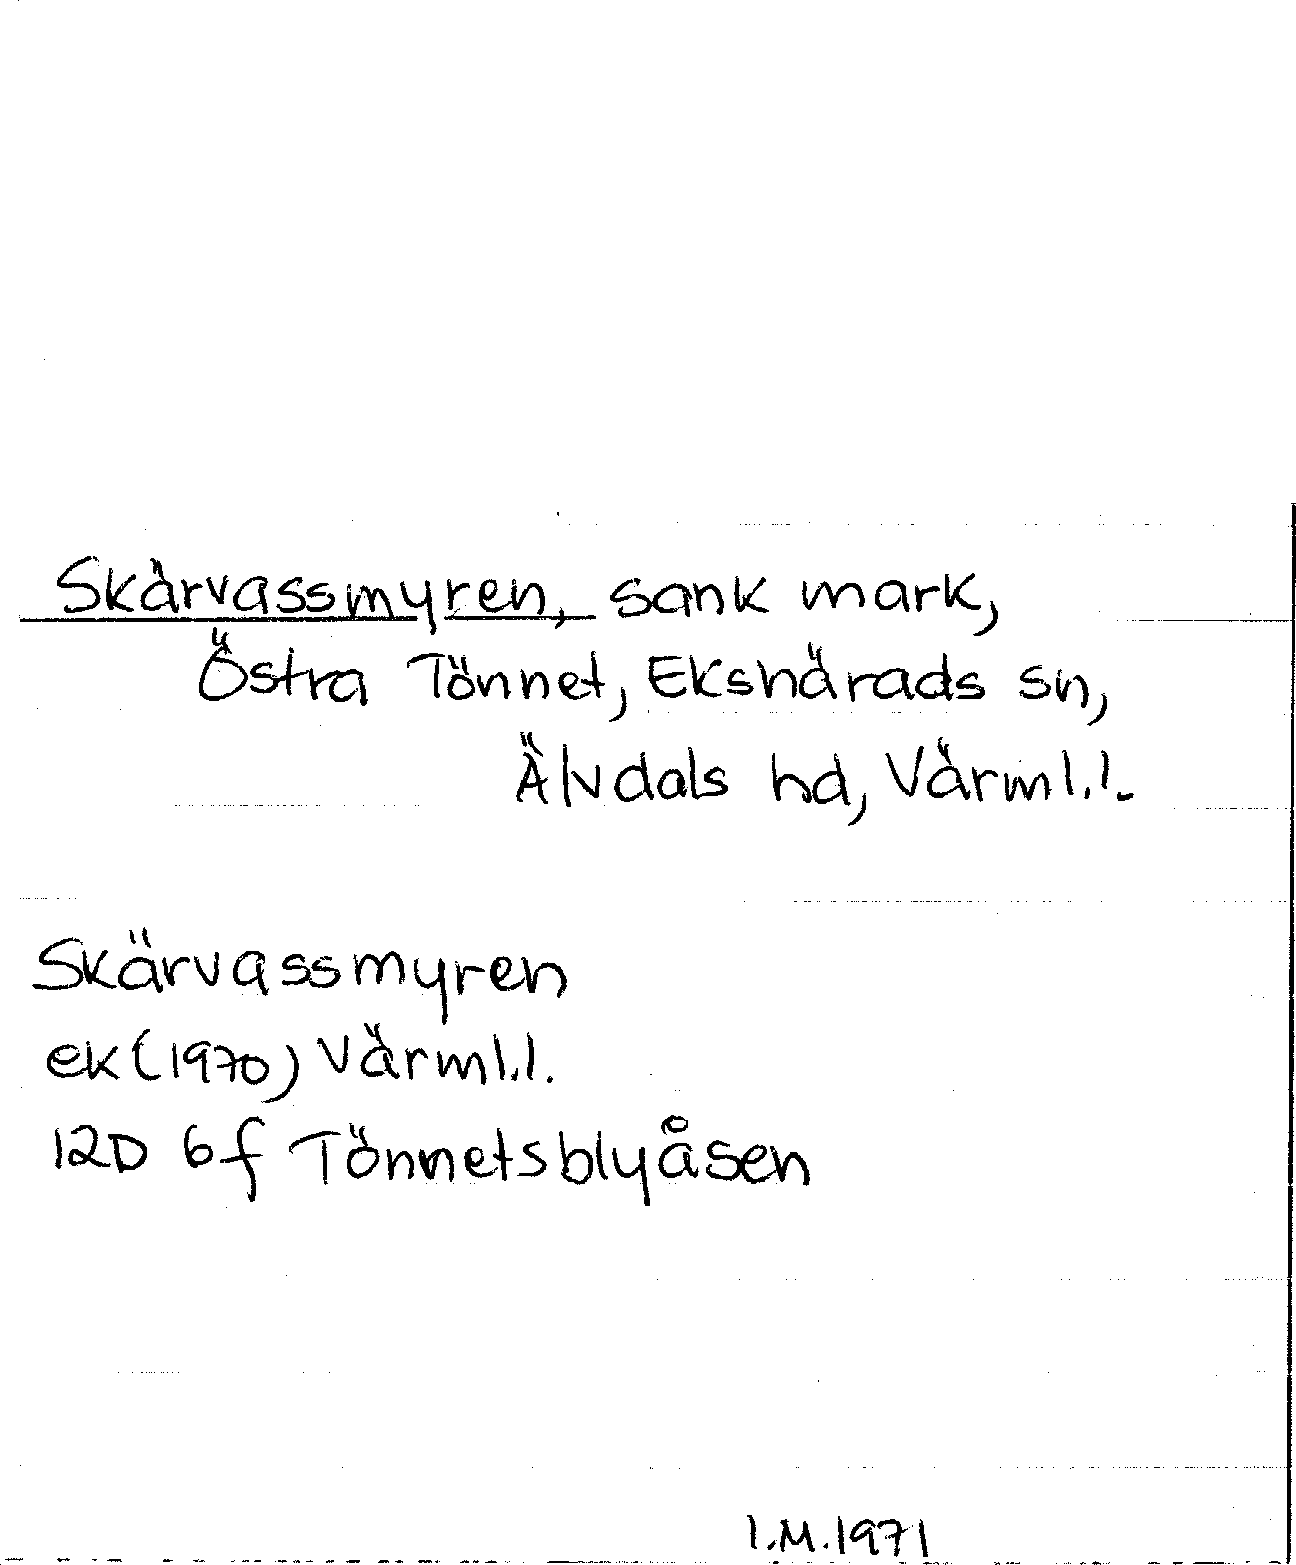 Skärvassmyren, sank mark,
Östra Tönnet, Ekshärads sn,
Älvdals hd, Värml.l.
Skärvassmyren
ek (1970) Värml.l.
12D 6f Tönnetsblyåsen
I.M. 1971